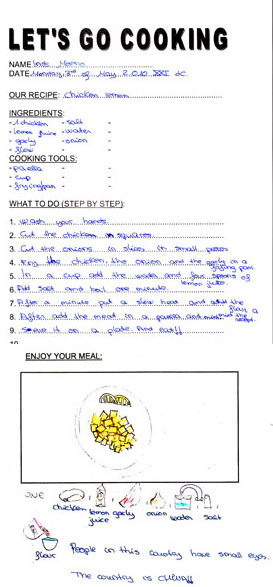 LET'S GO COOKING
NAME
DATE Monday, 3rd of May 2.010
OUR RECIPE: Chicken lemon
INGREDIENTS:
- 1 chicken - salt -
- lemon juice - water -
- garly - onion -
- flow -
COOKING TOOLS:
- paella -
- cup -
- frying pan -
WHAT TO DO (STEP BY STEP):
1. Wash your hands
2. Cut the chicken in squares
3. Cut the onions in slices in small pieces
4. Fry the chicken, the onion and the garly in a frying pan.
5. In a cup add the water and four spoons of lemon juice.
6. Add salt and boil one minute.
7. After a minute put a slow heat and add the flour
8. After add the meat in a paella and
9. Serve it on a plate. And eat!!
10
ENJOY YOUR MEAL:
chicken, lemon juice garly onion water salt
flour People in this country have small eyes.
The country is CHINA!!